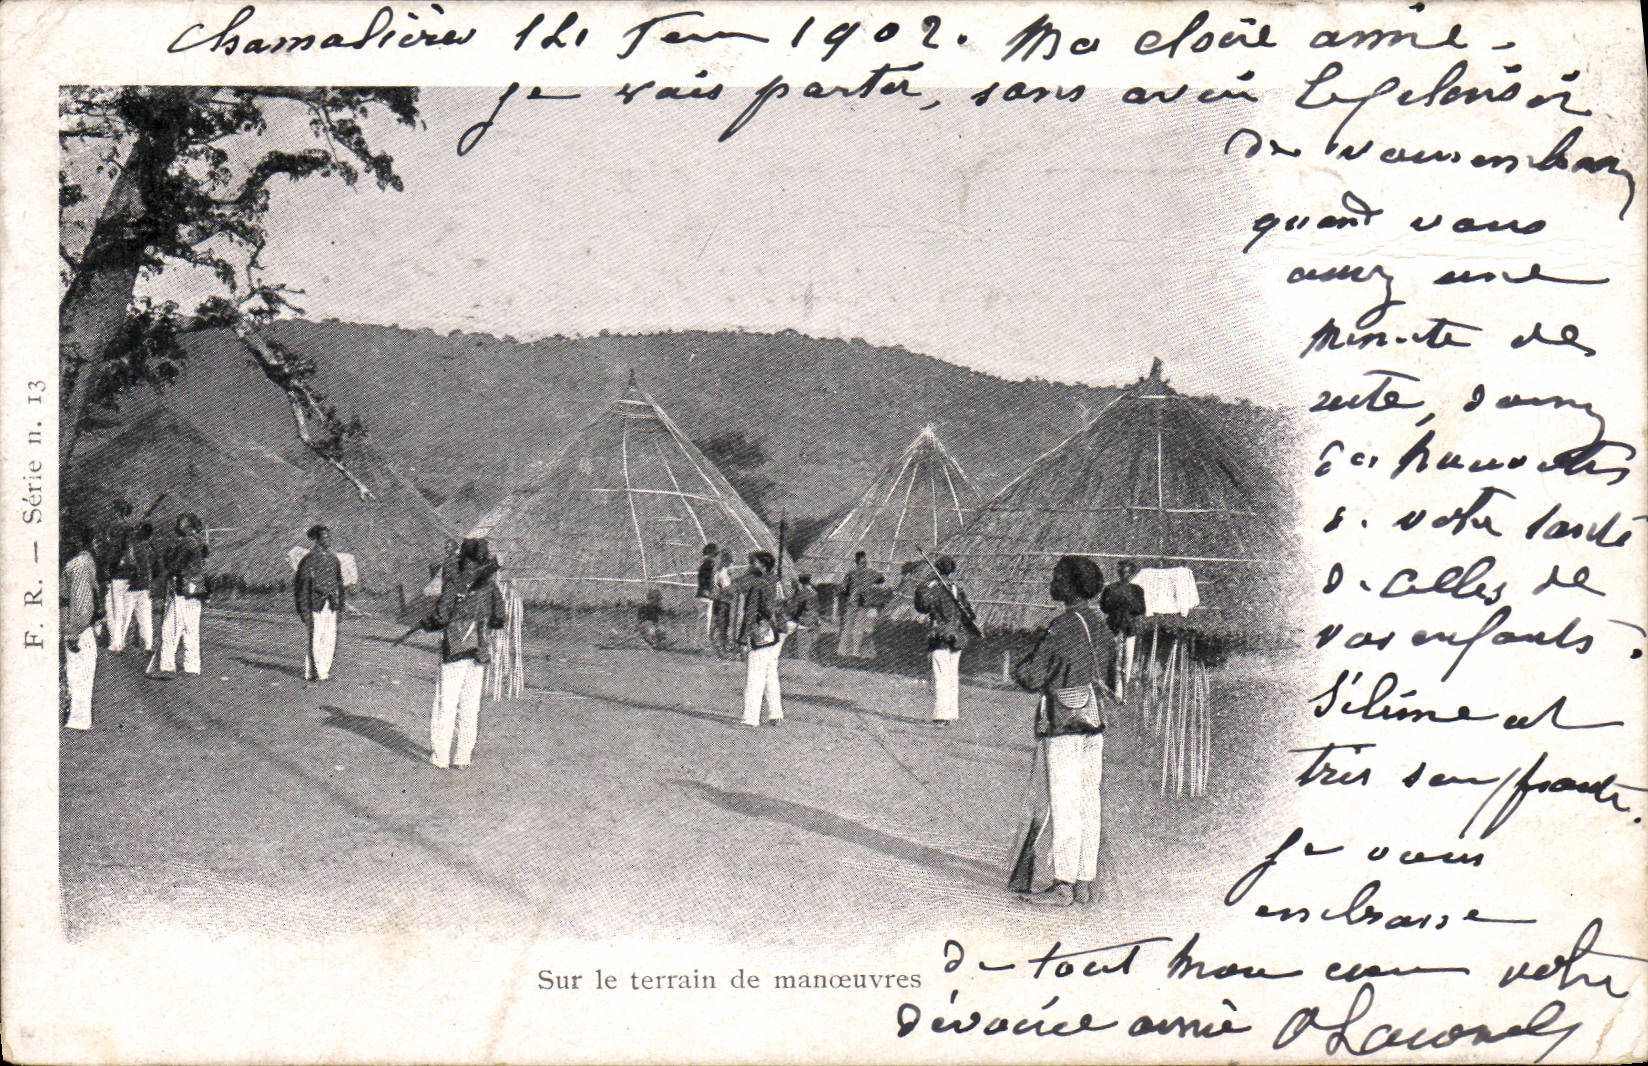 Chamalières 14 1902. Ma chère amie.
je vais partir, sans avoir le plaisir
de vous embrasser
quand vous
aurez une
minute de
donnez
des nouvelles
de votre santé
de celles de
vos enfants.
et
très souffrante.
je vous
embrasse
de tout mon cœur votre
dévouée amie
Sur le terrain de manœuvres
F. R. — Série n. 13